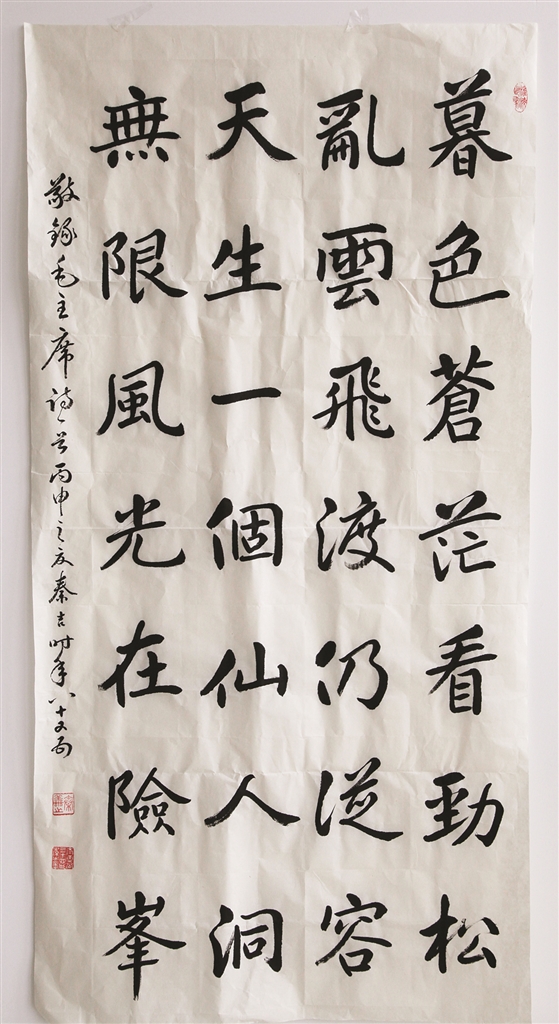 暮色蒼茫看勁松
亂雲飛渡仍從容
天生一個仙人洞
無限風光在險峯
敬錄毛主席詩一首丙申之夏秦吉时年八十又